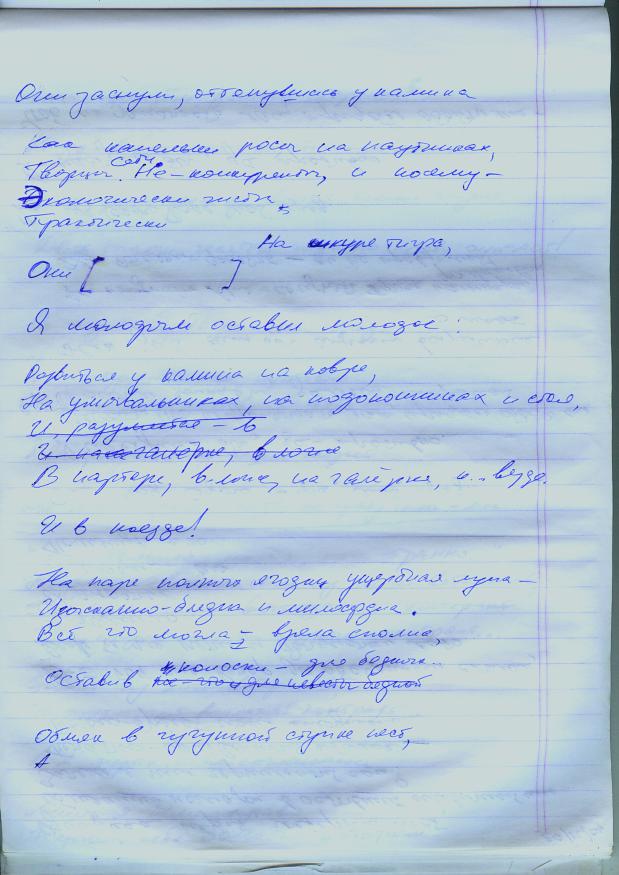 Они заснули, оттянувшись у камина
Как капельки росы на паутинках,
Творцы сети. Не-конкуренты, и посему –
Экологически чисты,
Практически
На шкуре тигра,
Они [ ]
Я молодым оставил молодое:
Резвиться у камина на ковре,
На умывальниках, на подоконниках и столе,
И, разумеется – в
И на галёрке, в ложе
В партере, в ложе, на галёрке, и.. везде.
И в поезде!
На паре полного ягодиц ущербная луна –
Изысканно-бледна и милосердна.
Всё что могла – взяла сполна,
Оставив колоски – для бедных..
для невесты бедной
Обмяк в чугунной ступке пест,
А